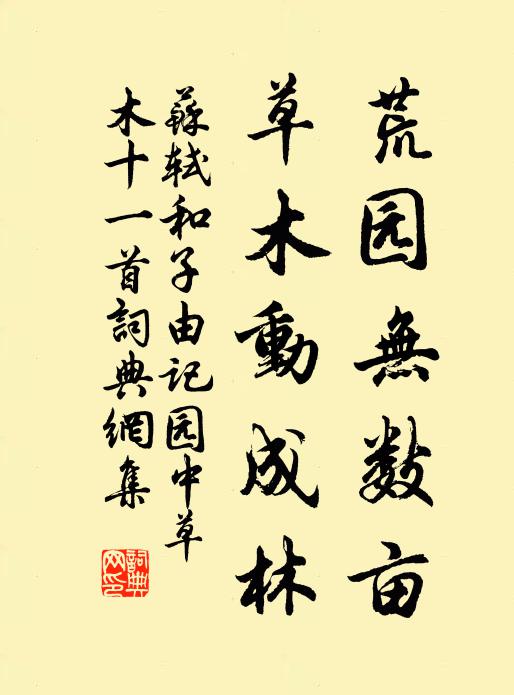 荒园無数亩
草木動成林
蘇轼和子由记园中草
木十一首詞典網集
詞典
网印